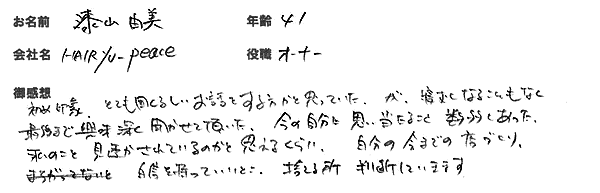 お名前 漆山 由美 年齢 41
会社名 HAIR yu-peace 役職 オーナー
御感想
初め印象、とても固くるしいお話をする方かと思っていた。が、寝むくなることもなく
最後まで興味深く聞かせて頂いた。今の自分に思い当たること 数多くあった。
私のこと 見透かされているのかと思えるくらい。自分の今までの店づくり、
まちがってないと 自信を持っていいとこ、捨てる所 判断していきます